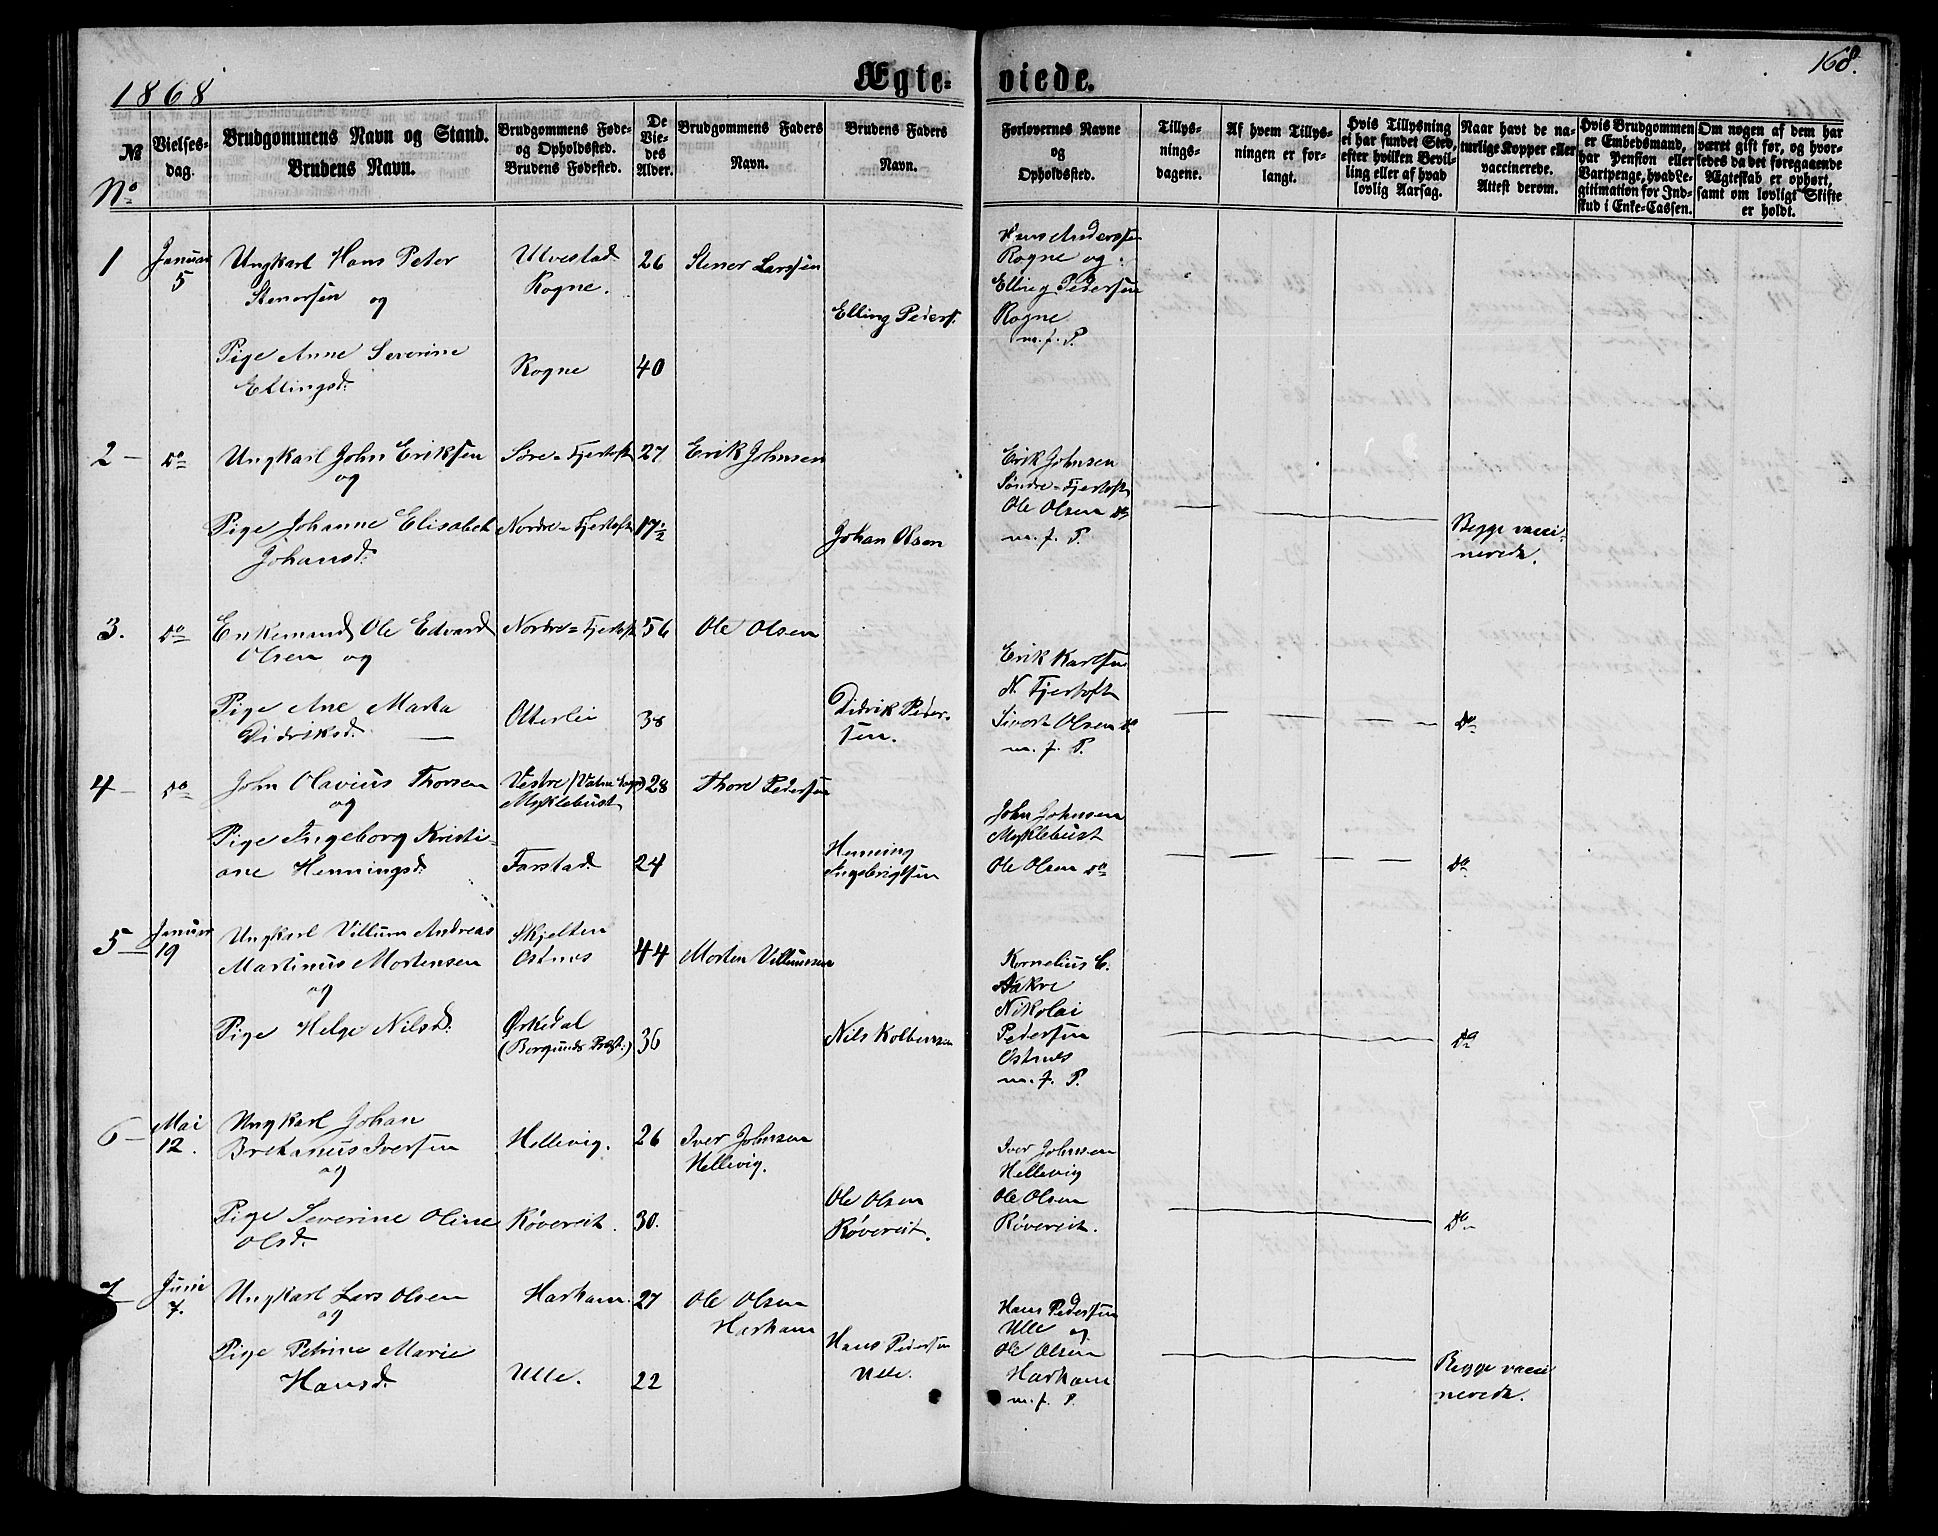 1868
Ægte-
viede.
168.
№
Vielses-
dag.
Brudgommens Navn og Stand.
Brudens Navn.
Brudgommens Føde-
og Opholdssted.
Brudens Fødested.
De
Vie-
des
Alder.
Brudgommens Faders
Navn.
Brudens Faders
Navn.
Forlovernes Navne
og
Opholdssted.
Tillys-
nings-
dagene.
Af hvem Tillys-
ningen er for-
langt.
Hvis Tillysning
ei har fundet Sted,
efter hvilken Bevil-
ling eller af hvad
lovlig Aarsag.
Naar havt de na-
turlige Kopper eller
vaccinerede.
Attest derom.
Hvis Brudgommen
er Embedsmand,
har Pension eller
Vartpenge, hvad Le-
gitimation for Ind-
skud i Enke-Cassen.
Om nogen af dem har
været gift før, og hvor-
ledes da det foregaaende
Ægteskab er ophørt,
samt om lovligt Skifte
er holdt.
No
1 Januar 5
Ungkarl Hans Peter
Stenersen og
Ulvestad
Rogne.
26
Stener Larssen
Elling Peders.
Hans Anderssen
Rogne og
Elling Pedersen
Rogne
m. f. P.
Pige Anne Severine
Ellingsd.
Rogne
40
2 – do
Ungkarl John Eriksen
og
Søre=Fjertoft
27
Erik Johnsen
Erik Johnsen
Søndre=Fjertoft
Ole Olsen do
m. f. P.
Pige Johanne Elisabet
Johansd.
Nordre=Fjertoft
17½
Johan Olsen
Begge vacci-
nerede.
3. do
Enkemand Ole Edvard
Olsen og
Nordre=Fjertoft
56
Ole Olsen
Erik Karlsen
N. Fjertoft
Sivert Olsen do
m. f. P.
Pige Ane Marta
Didriksd.
Otterlei
38
Didrik Peder-
sen.
do
4 – do
John Olavius Thorsen
og
Vestre (Vatne Sogn)
Myklebust
28
Thore Pedersen
John Johnsen
Myklebust
Ole Olsen do
Pige Ingeborg Kristi-
ane Henningsd.
Farstad
24
Henning
Ingebrigtsen
do
5 – Januar 19
Ungkarl Villum Andreas
Martinus Mortensen
og
Skjelten
Østnes
44
Morten Villumsen
Kornelius C.
Aakre
Nikolai
Pedersen
Østnes
m. f. P.
Pige Helge Nilsd.
Ørskedal
(Borgunds Prgj.)
36
Nils Kolbensen
do
6 – Mai 12.
Ungkarl Johan
Bretanus Iversen
og
Hellevig.
26
Iver Johnsen
Hellevig.
Iver Johnsen
Hellevig
Ole Olsen
Røvereit.
Pige Severine Oline
Olsd.
Røvereit.
30.
Ole Olsen
Røvereit.
do
7 Juni 7.
Ungkarl Lars Olsen
og
Harham.
27
Ole Olsen
Harham
Hans Pedersen
Ulle og
Ole Olsen
Harham
m. f. P.
Pige Petrine Marie
Hansd.
Ulle.
22
Hans Pedersen
Ulle.
Begge vacci-
nerede.